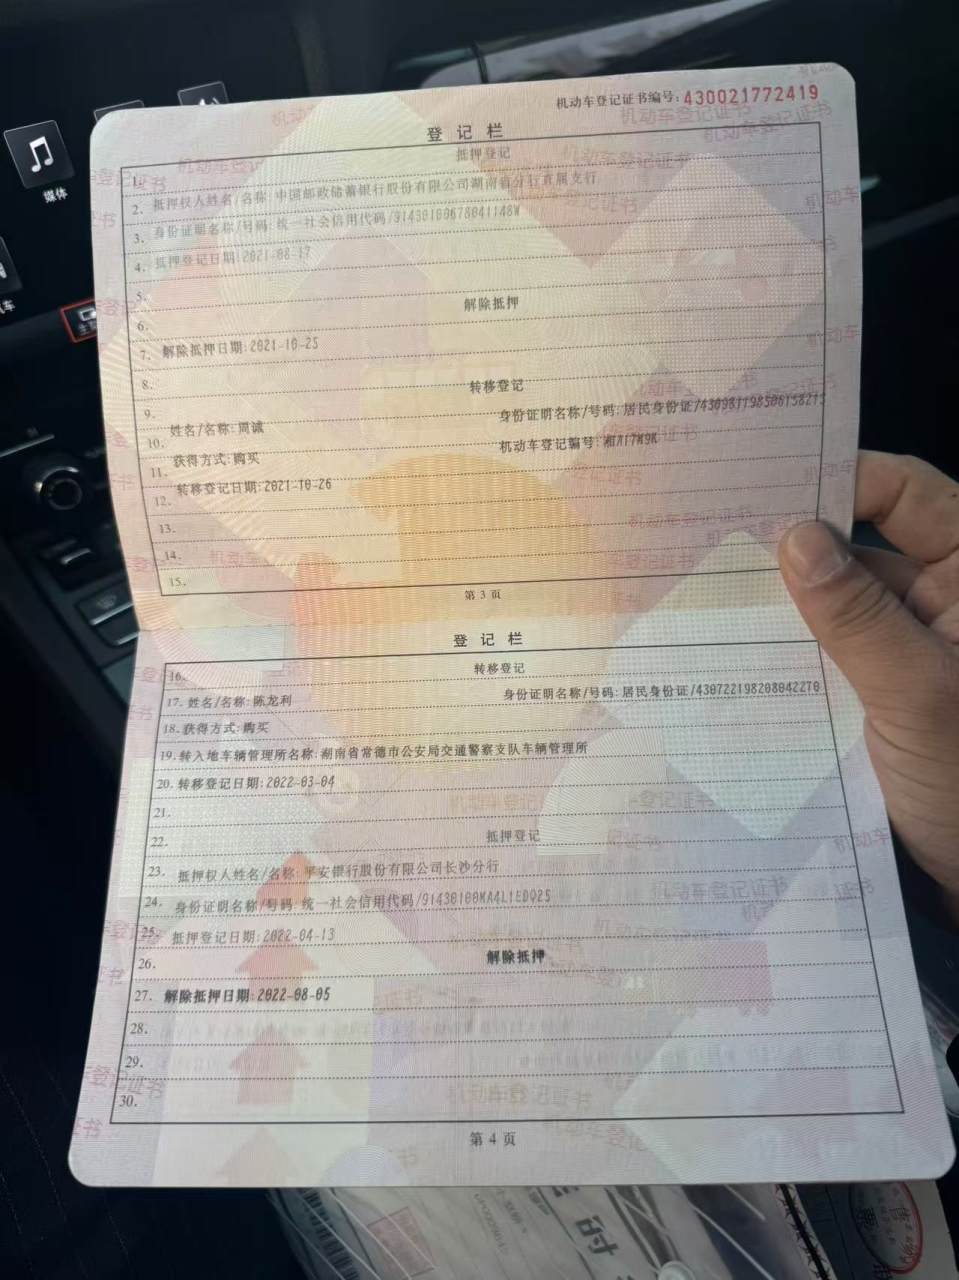 媒体
机动车登记证书编号:430021772419
登记栏
1. 抵押登记
2. 抵押权人姓名/名称:中国邮政储蓄银行股份有限公司湖南省分行直属支行
3. 身份证明名称/号码:统一社会信用代码/91430100678041148W
4. 抵押登记日期:2021-08-17
5.
6. 解除抵押
7. 解除抵押日期:2021-10-25
8.
9. 转移登记
10. 姓名/名称:周诚 身份证明名称/号码:居民身份证/430981198506158213
11. 获得方式:购买 机动车登记编号:湘A17M9K
12. 转移登记日期:2021-10-26
13.
14.
15.
第3页
登记栏
16. 转移登记
17. 姓名/名称:陈龙利 身份证明名称/号码:居民身份证/430722198208042270
18. 获得方式:购买
19. 转入地车辆管理所名称:湖南省常德市公安局交通警察支队车辆管理所
20. 转移登记日期:2022-03-04
21.
22. 抵押登记
23. 抵押权人姓名/名称:平安银行股份有限公司长沙分行
24. 身份证明名称/号码:统一社会信用代码/91430100MA4L1EDQ25
25. 抵押登记日期:2022-04-13
26. 解除抵押
27. 解除抵押日期:2022-08-05
28.
29.
30.
第4页